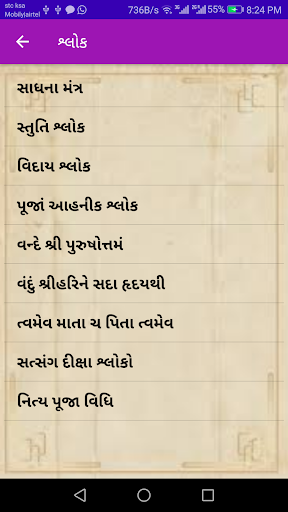 stc ksa
Mobily|airtel
736B/s
3G
2G
8:24 PM
શ્લોક
સાધના મંત્ર
સ્તુતિ શ્લોક
વિદાય શ્લોક
પૂજાં આહનીક શ્લોક
વન્દે શ્રી પુરુષોત્તમં
વંદું શ્રીહરિને સદા હૃદયથી
ત્વમેવ માતા ચ પિતા ત્વમેવ
સત્સંગ દીક્ષા શ્લોકો
નિત્ય પૂજા વિધિ